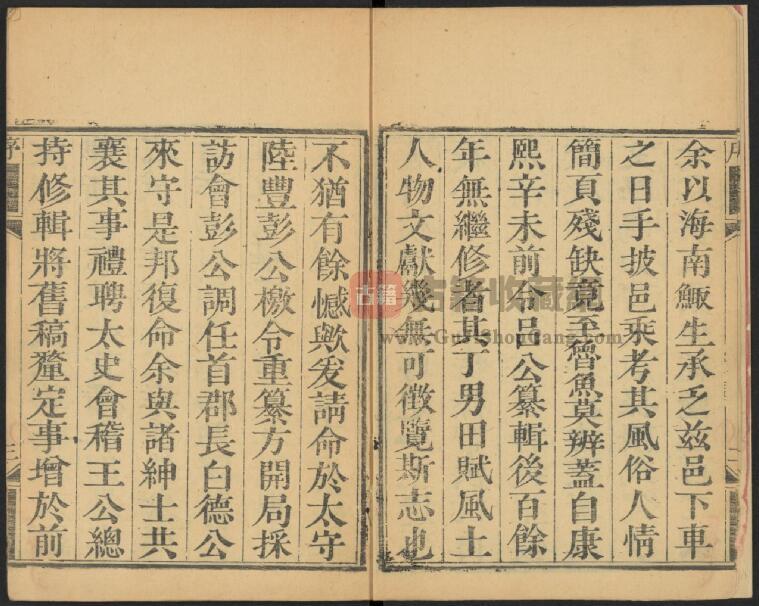 余以海南鯫生承乏玆邑下車
之日手披邑乘考其風俗人情
簡頁殘缺竟至魯魚莫辨蓋自康
熙辛未前令呂公纂輯後百餘
年無繼修者其丁男田賦風土
人物文獻幾無可徵覽斯志也
不猶有餘憾歟爰請命於太守
陸豐彭公檄令重纂方開局採
訪會彭公調任首郡長白德公
來守是邦復命余與諸紳士共
襄其事禮聘太史會稽王公總
持修輯將舊稿釐定事增於前
序
三
序
二
古籍
古籍收藏網
www.GuJiShouCang.com